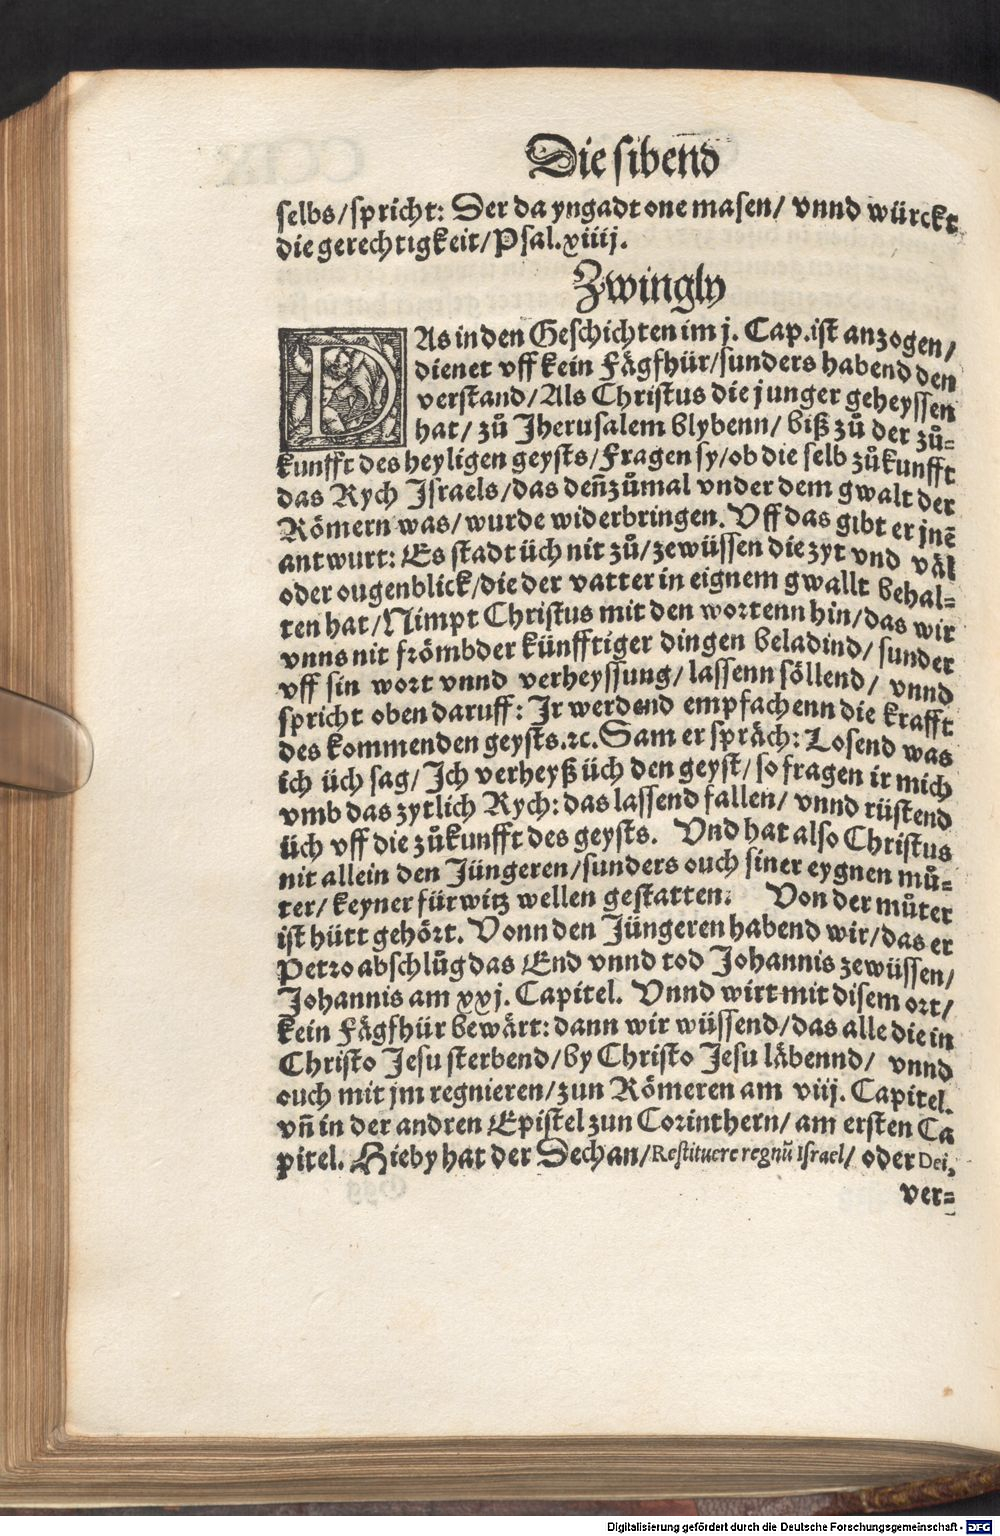 Die sibend̄
selbs/spricht: Der da yngadt one masen/ vnnd würckt
die gerechtigkeit/Psal.xiiij.
Zwingly
DAs in den Geschichten im j. Cap.ist anzogen/
dienet vff kein Fägfhür/sunders habend den
verstand/Als Christus die junger geheyssen
hat/ zů Jherusalem blybenn/ biß zů der zů-
kunfft des heyligen geysts/Fragen sy/ob die selb zůkunfft
das Rych Jsraels/das deñzůmal vnder dem gwalt der
Römern was/wurde widerbringen. Vff das gibt er jnē
antwurt: Es stadt üch nit zů/zewüssen die zyt vnd väl
oder ougenblick/die der vatter in eignem gwallt behal-
ten hat/Nimpt Christus mit den wortenn hin/das wir
vnns nit frömbder künfftiger dingen beladind/ sunder
vff sin wort vnnd verheyssung/ lassenn söllend/ vnnd
spricht oben daruff: Jr werdend empfachenn die krafft
des kommenden geysts.ꝛc.Sam er spräch: Losend was
ich üch sag/Jch verheyß üch den geyst/so fragen ir mich
vmb das zytlich Rych: das lassend fallen/ vnnd rüstend
üch vff die zůkunfft des geysts. Vnd hat also Christus
nit allein den Jüngeren/sunders ouch siner eygnen mů-
ter/ keyner fürwitz wellen gestatten. Von der můter
ist hütt gehört. Vonn den Jüngeren habend wir/das er
Petro abschlůg das End vnnd tod Johannis zewüssen/
Johannis am xxj. Capitel. Vnnd wirt mit disem ort/
kein Fägfhür bewärt: dann wir wüssend/das alle die in
Christo Jesu sterbend/by Christo Jesu läbennd/ vnnd
ouch mit jm regnieren/zun Römeren am viij. Capitel.
vñ in der andren Epistel zun Corinthern/ am ersten Ca
pitel. Hieby hat der Dechan/Restituere regnū Israel/ oder Dei,
ver-
Digitalisierung gefördert durch die Deutsche Forschungsgemeinschaft - DFG